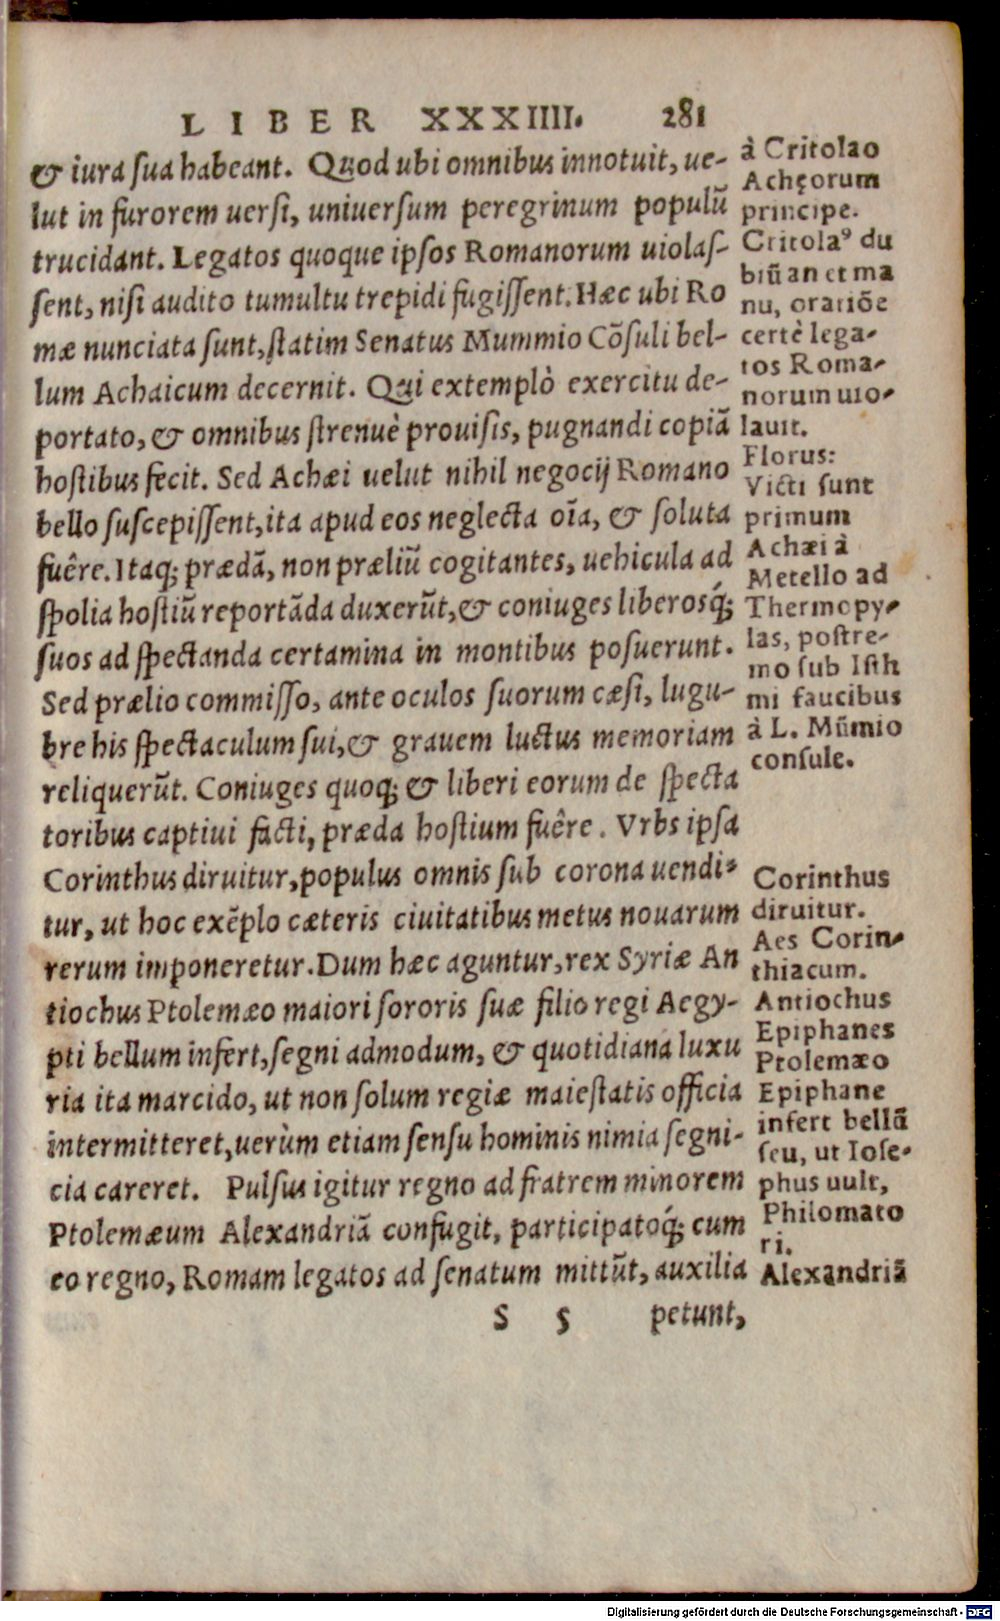 LIBER XXXIIII. 281
& iura ſua habeant. Quod ubi omnibus innotuit, ue-
lut in furorem uerſi, uniuerſum peregrinum populũ
trucidant. Legatos quoque ipſos Romanorum uiolaſ-
ſent, niſi audito tumultu trepidi fugiſſent. Hæc ubi Ro
mæ nunciata ſunt, ſtatim Senatus Mummio Cõſuli bel-
lum Achaicum decernit. Qui extemplò exercitu de-
portato, & omnibus ſtrenuè prouiſis, pugnandi copiã
hoſtibus fecit. Sed Achæi uelut nihil negocij Romano
bello ſuſcepiſſent, ita apud eos neglecta oĩa, & ſoluta
fuêre. Itaq; prædã, non præliũ cogitantes, uehicula ad
ſpolia hoſtiũ reportãda duxerũt, & coniuges liberosq́;
ſuos ad ſpectanda certamina in montibus poſuerunt.
Sed prælio commiſſo, ante oculos ſuorum cæſi, lugu-
bre his ſpectaculum ſui, & grauem luctus memoriam
reliquerũt. Coniuges quoq; & liberi eorum de ſpecta
toribus captiui facti, præda hoſtium fuêre. Vrbs ipſa
Corinthus diruitur, populus omnis ſub corona uendi-
tur, ut hoc exẽplo cæteris ciuitatibus metus nouarum
rerum imponeretur. Dum hæc aguntur, rex Syriæ An
tiochus Ptolemæo maiori ſororis ſuæ filio regi Aegy-
pti bellum infert, ſegni admodum, & quotidiana luxu
ria ita marcido, ut non ſolum regiæ maieſtatis officia
intermitteret, uerùm etiam ſenſu hominis nimia ſegni-
cia careret. Pulſus igitur regno ad fratrem minorem
Ptolemæum Alexandriã confugit, participatoq́; cum
eo regno, Romam legatos ad ſenatum mittũt, auxilia
S 5 petunt,
à Critolao
Achęorum
principe.
Critolaꝰ du
biũ an et ma
nu, oratiõe
certè lega-
tos Roma-
norum uio-
lauit.
Florus:
Victi ſunt
primum
Achæi à
Metello ad
Thermopy-
las, poſtre-
mo ſub Iſth
mi faucibus
à L. Mũmio
conſule.
Corinthus
diruitur.
Aes Corin-
thiacum.
Antiochus
Epiphanes
Ptolemæo
Epiphane
infert bellũ
ſeu, ut Ioſe-
phus uult,
Philomato
ri.
Alexandriã
Digitalisierung gefördert durch die Deutsche Forschungsgemeinschaft - DFG